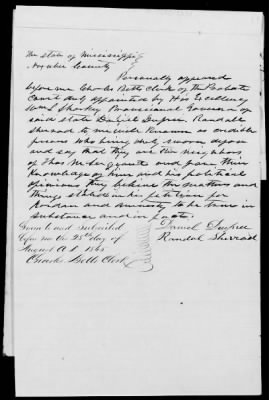 The State of Mississippi
Noxubee County
Personally appeared
before me Charles Betts Clerk of the Probate
Court duly appointed by His Excellency
Wm L Sharkey Provisional Governor of
said state Daniel Dupree Randale
Sherrod to me well known as credible
persons who being duly sworn depose
and say that they are the neighbors
of Thos M and from their
Knowledge of him and his political
opinions they believe the matters and
things stated in his petition for
Pardon and amnesty to be true in
substance and in fact.
Sworn to and subscribed
before me the 28th day of
August A D 1865
Charles Betts Clerk
Daniel Dupree
Randal Sherrod